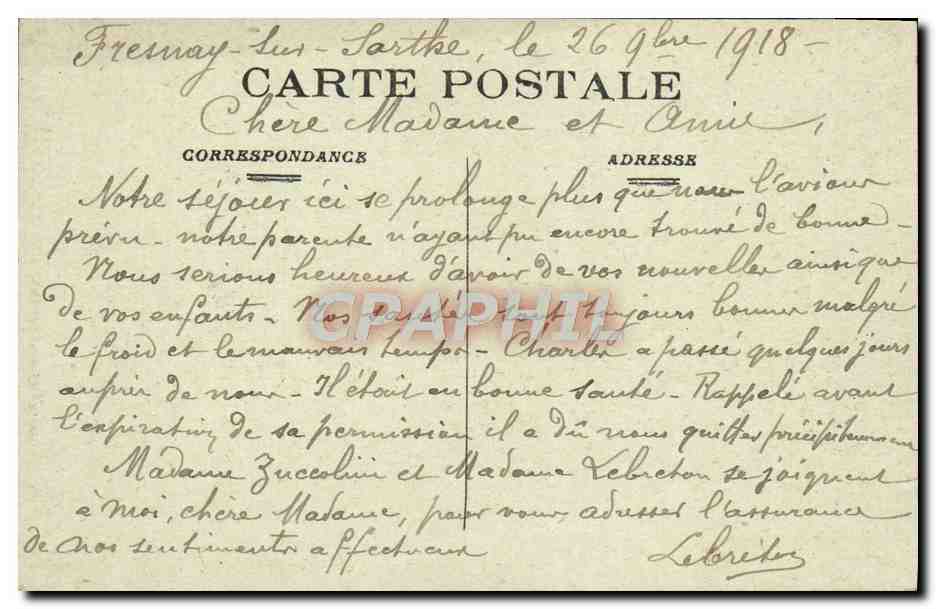 Fresnay-sur-Sarthe, le 26 9bre 1918-
CARTE POSTALE
Chère Madame et Amie,
CORRESPONDANCE
ADRESSE
Notre séjour ici se prolonge plus que nous l'avions
prévu - notre parente n'ayant pu encore trouvé de bonne -
Nous serions heureux d'avoir de vos nouvelles ainsi que
de vos enfants - Nos santés sont toujours bonnes malgré
GRAPHIL
le froid et le mauvais temps - Charles a passé quelques jours
auprès de nous - Il était en bonne santé - Rappelé avant
l'expiration de sa permission il a dû nous quitter précipitamment
Madame Zuccolini et Madame Lebreton se joignent
à moi, chère Madame, pour vous adresser l'assurance
de nos sentiments affectueux
Lebreton